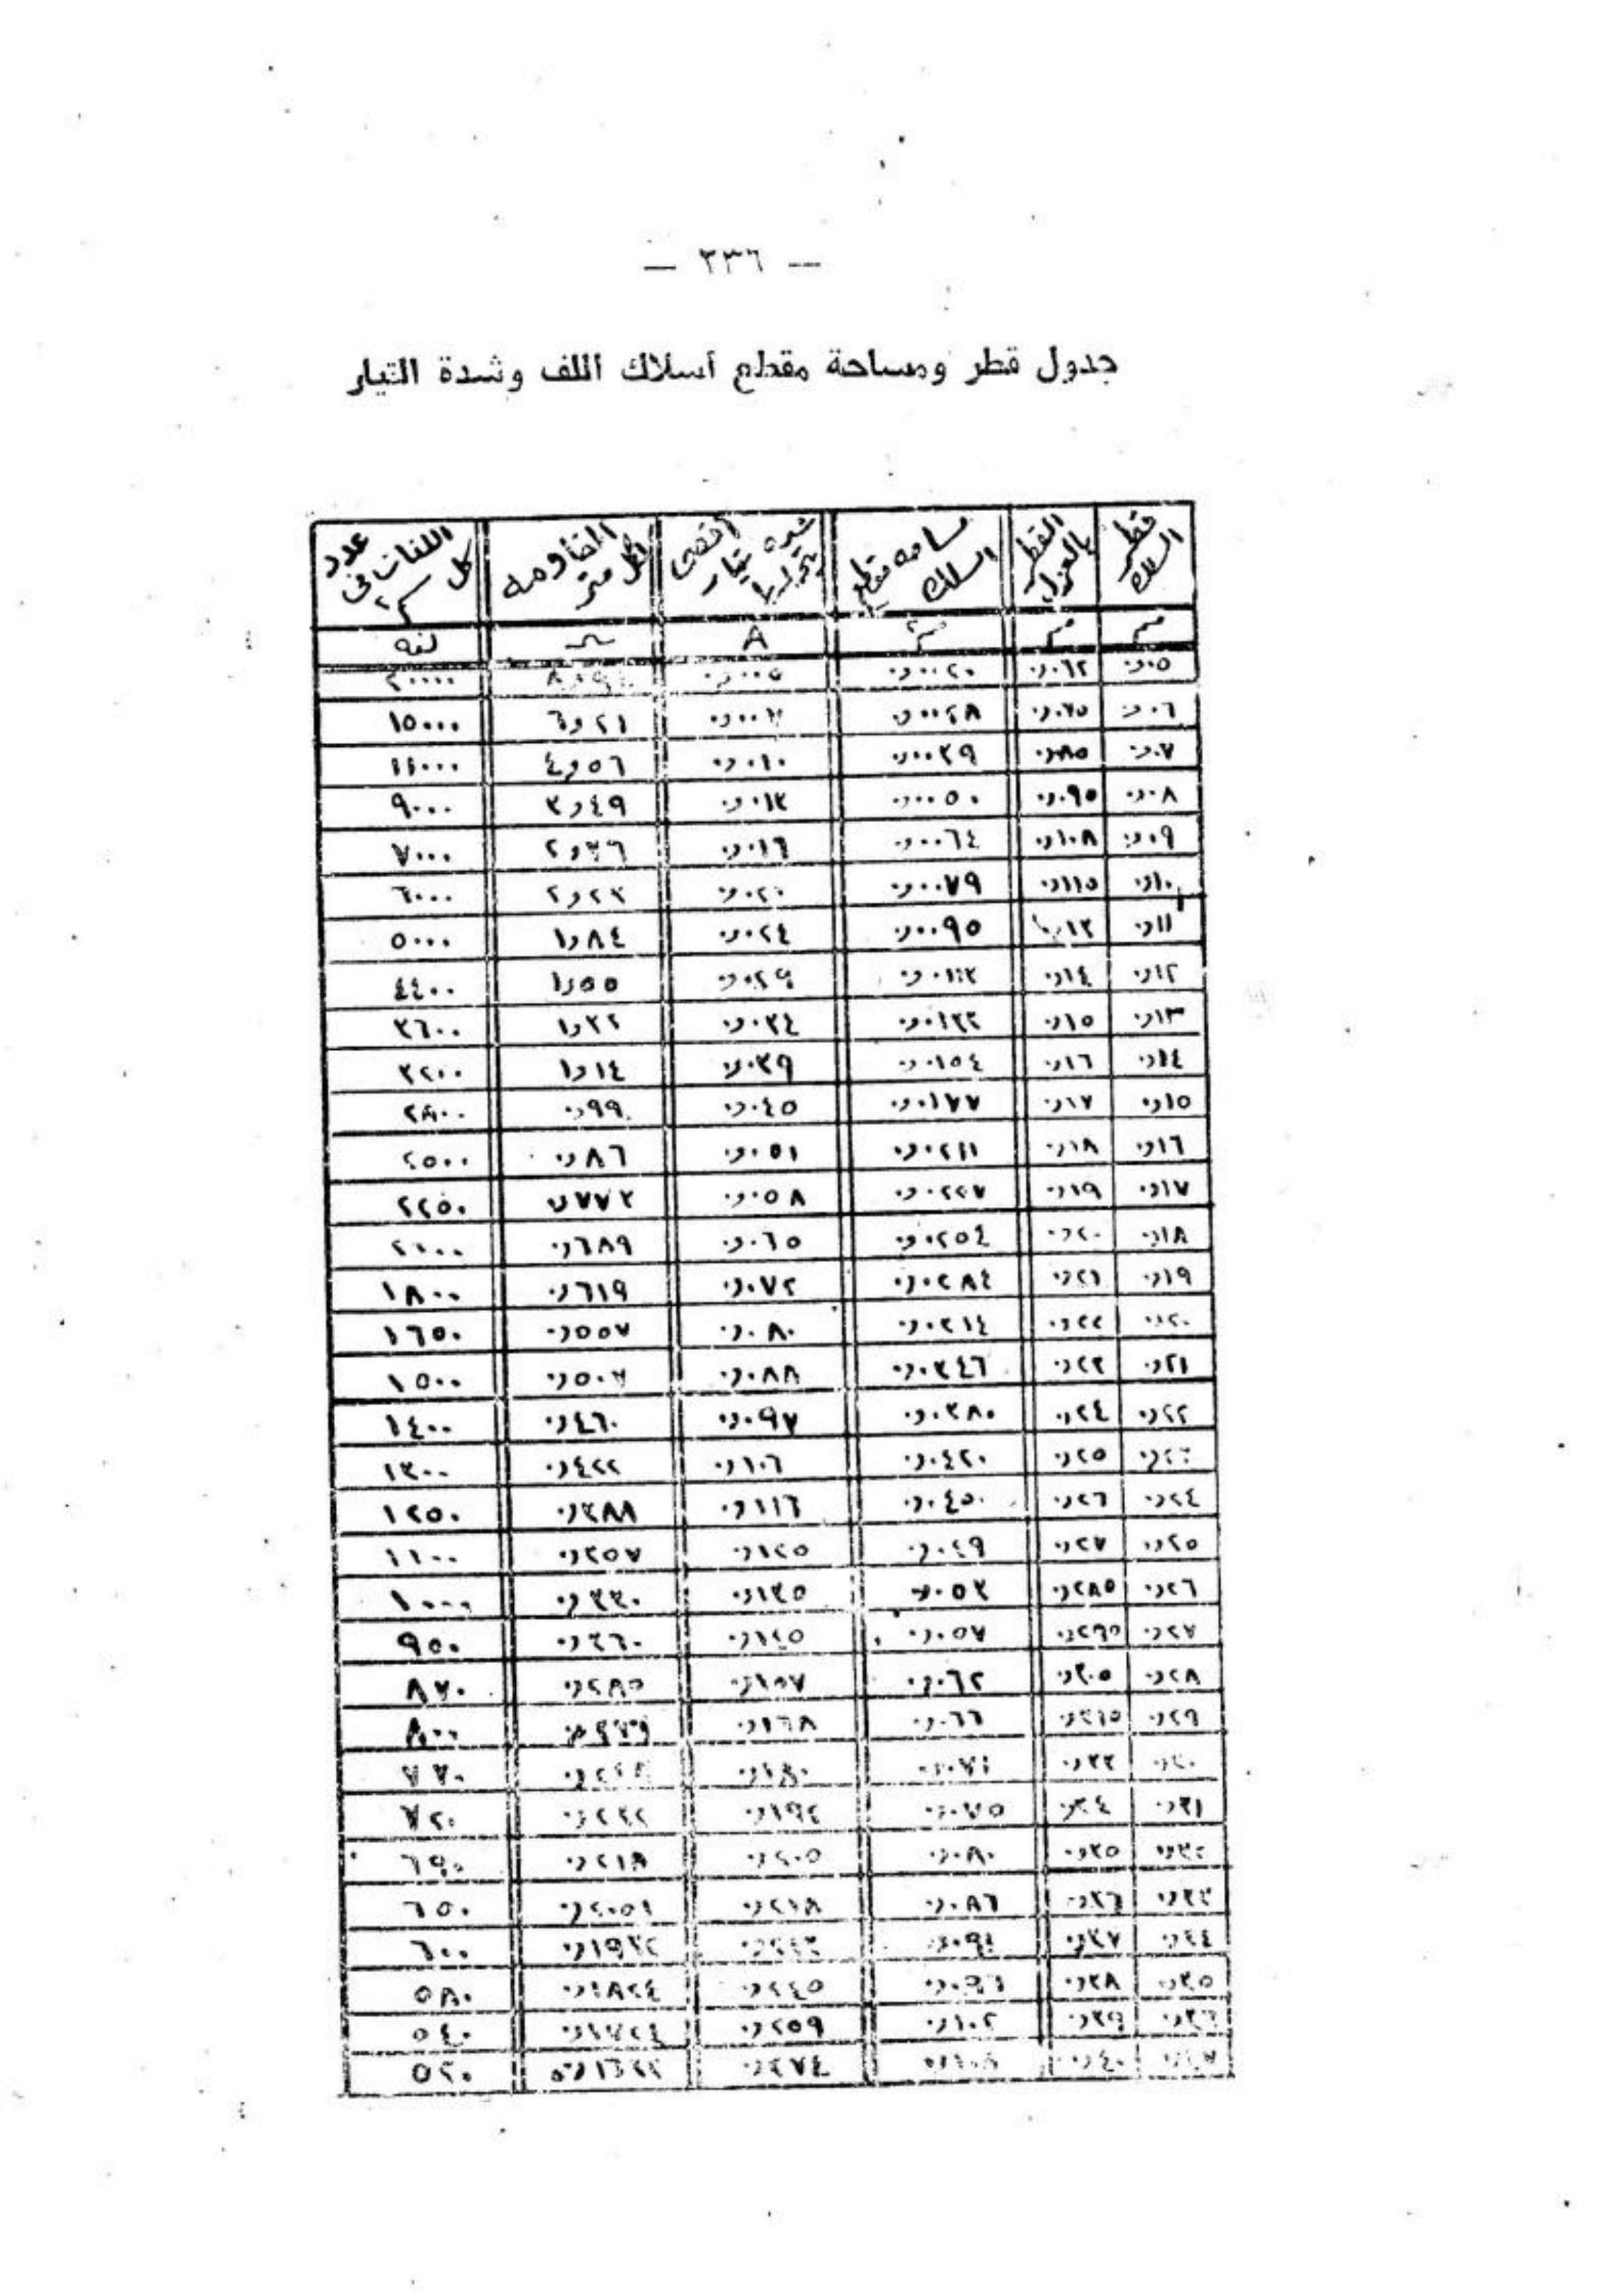 — ٢٣٦ —
جدول قطر ومساحة مقطع أسلاك اللف وشدة التيار
قطر السلك القطر بالعزل مساحه مقطع السلك أقصى شده تيار المقاومه لكل متر عدد اللفات فى كل سم٢
مم مم مم٢ A Ω لفه
٠٫٠٥ ٠٫٠٦٢ ٠٫٠٠٢٠ ٠٫٠٠٥ ٢٠٠٠٠
٠٫٠٦ ٠٫٠٧٥ ٠٫٠٠٢٨ ٠٫٠٠٧ ٦٫٢١ ١٥٠٠٠
٠٫٠٧ ٠٫٠٨٥ ٠٫٠٠٣٩ ٠٫٠١٠ ٤٫٥٦ ١١٠٠٠
٠٫٠٨ ٠٫٠٩٥ ٠٫٠٠٥٠ ٠٫٠١٣ ٣٫٤٩ ٩٠٠٠
٠٫٠٩ ٠٫١٠٨ ٠٫٠٠٦٤ ٠٫٠١٦ ٢٫٧٦ ٧٠٠٠
٠٫١٠ ٠٫١١٥ ٠٫٠٠٧٩ ٠٫٠٢٠ ٢٫٢٣ ٦٠٠٠
٠٫١١ ٠٫١٣ ٠٫٠٠٩٥ ٠٫٠٢٤ ١٫٨٤ ٥٠٠٠
٠٫١٢ ٠٫١٤ ٠٫٠١١٣ ٠٫٠٢٩ ١٫٥٥ ٤٤٠٠
٠٫١٣ ٠٫١٥ ٠٫٠١٣٣ ٠٫٠٣٤ ١٫٣٢ ٣٦٠٠
٠٫١٤ ٠٫١٦ ٠٫٠١٥٤ ٠٫٠٣٩ ١٫١٤ ٣٢٠٠
٠٫١٥ ٠٫١٧ ٠٫٠١٧٧ ٠٫٠٤٥ ٠٫٩٩ ٢٨٠٠
٠٫١٦ ٠٫١٨ ٠٫٠٢١١ ٠٫٠٥١ ٠٫٨٦ ٢٥٠٠
٠٫١٧ ٠٫١٩ ٠٫٠٢٢٧ ٠٫٠٥٨ ٠٫٧٧٢ ٢٢٥٠
٠٫١٨ ٠٫٢٠ ٠٫٠٢٥٤ ٠٫٠٦٥ ٠٫٦٨٩ ٢٠٠٠
٠٫١٩ ٠٫٢١ ٠٫٠٢٨٤ ٠٫٠٧٢ ٠٫٦١٩ ١٨٠٠
٠٫٢٠ ٠٫٢٢ ٠٫٠٣١٤ ٠٫٠٨٠ ٠٫٥٥٧ ١٦٥٠
٠٫٢١ ٠٫٢٣ ٠٫٠٣٤٦ ٠٫٠٨٨ ٠٫٥٠٧ ١٥٠٠
٠٫٢٢ ٠٫٢٤ ٠٫٠٣٨٠ ٠٫٠٩٧ ٠٫٤٦٠ ١٤٠٠
٠٫٢٣ ٠٫٢٥ ٠٫٠٤٢٠ ٠٫١٠٦ ٠٫٤٢٢ ١٣٠٠
٠٫٢٤ ٠٫٢٦ ٠٫٠٤٥٠ ٠٫١١٦ ٠٫٣٨٨ ١٢٥٠
٠٫٢٥ ٠٫٢٧ ٠٫٠٤٩ ٠٫١٢٥ ٠٫٣٥٧ ١١٠٠
٠٫٢٦ ٠٫٢٨٥ ٠٫٠٥٣ ٠٫١٣٥ ٠٫٣٣٠ ١٠٠٠
٠٫٢٧ ٠٫٢٩٥ ٠٫٠٥٧ ٠٫١٤٥ ٩٥٠
٠٫٢٨ ٠٫٣٠٥ ٠٫٠٦٢ ٠٫١٥٧ ٠٫٢٨٥ ٨٧٠
٠٫٢٩ ٠٫٣١٥ ٠٫٠٦٦ ٠٫١٦٨ ٨٠٠
٠٫٣٠ ٠٫٣٣ ٠٫٠٧١ ٠٫١٨٠ ٠٫٢٤٨ ٧٧٠
٠٫٣١ ٠٫٣٤ ٠٫٠٧٥ ٠٫١٩٢ ٠٫٢٣٢ ٧٢٠
٠٫٣٢ ٠٫٣٥ ٠٫٠٨٠ ٠٫٢٠٥ ٠٫٢١٨ ٦٩٠
٠٫٣٣ ٠٫٣٦ ٠٫٠٨٦ ٠٫٢١٨ ٠٫٢٠٥١ ٦٥٠
٠٫٣٤ ٠٫٣٧ ٠٫٠٩١ ٠٫١٩٣٢ ٦٠٠
٠٫٣٥ ٠٫٣٨ ٠٫٠٩٦ ٠٫٢٤٥ ٠٫١٨٢٤ ٥٨٠
٠٫٣٦ ٠٫٣٩ ٠٫١٠٢ ٠٫٢٥٩ ٠٫١٧٢٤ ٥٤٠
٠٫٣٧ ٠٫٤٠ ٠٫٢٧٤ ٥٢٠